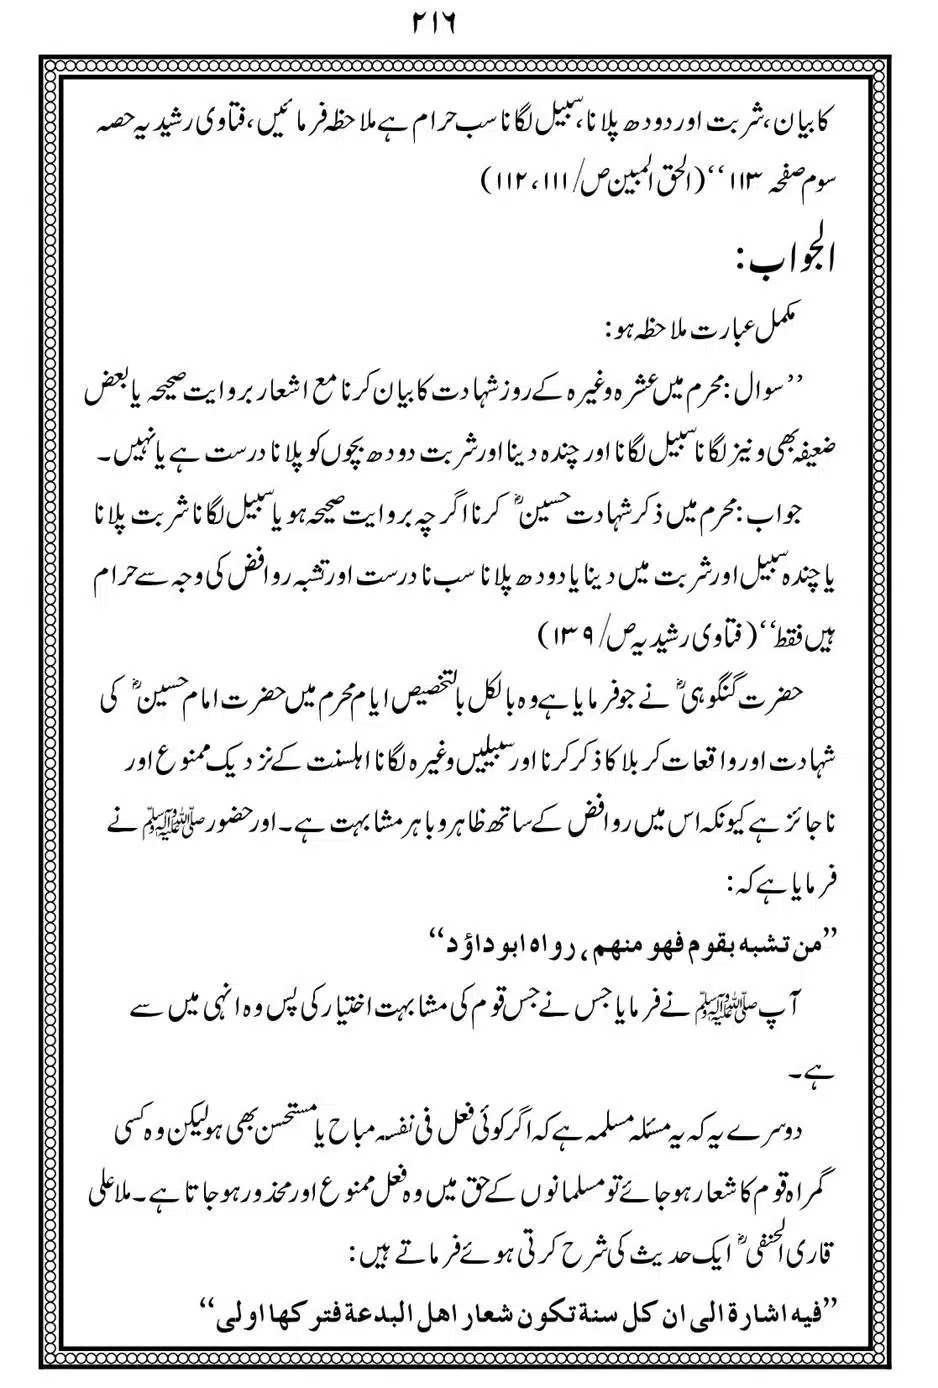 ۲۱۶
کا بیان، شربت اور دودھ پلانا، سبیل لگانا سب حرام ہے ملاحظہ فرمائیں، فتاوی رشیدیہ حصہ
سوم صفحہ ۱۱۳‘‘ (الحق المبین ص/۱۱۱، ۱۱۲)
الجواب:
مکمل عبارت ملاحظہ ہو:
’’سوال: محرم میں عشرہ وغیرہ کے روز شہادت کا بیان کرنا مع اشعار بروایت صحیحہ یا بعض
ضعیفہ بھی و نیز لگانا سبیل لگانا اور چندہ دینا اور شربت دودھ بچوں کو پلانا درست ہے یا نہیں۔
جواب: محرم میں ذکر شہادت حسینؓ کرنا اگرچہ بروایت صحیحہ ہو یا سبیل لگانا شربت پلانا
یا چندہ سبیل اور شربت میں دینا یا دودھ پلانا سب نا درست اور تشبہ روافض کی وجہ سے حرام
ہیں فقط‘‘ (فتاوی رشیدیہ ص/۱۳۹)
حضرت گنگوہیؒ نے جو فرمایا ہے وہ بالکل بالتخصیص ایام محرم میں حضرت امام حسینؓ کی
شہادت اور واقعات کربلا کا ذکر کرنا اور سبیلیں وغیرہ لگانا اہلسنت کے نزدیک ممنوع اور
ناجائز ہے کیونکہ اس میں روافض کے ساتھ ظاہر و باہر مشابہت ہے۔ اور حضور ﷺ نے
فرمایا ہے کہ:
’’من تشبه بقوم فهو منهم، رواه ابو داؤد‘‘
آپ ﷺ نے فرمایا جس نے جس قوم کی مشابہت اختیار کی پس وہ انہی میں سے
ہے۔
دوسرے یہ کہ یہ مسئلہ مسلمہ ہے کہ اگر کوئی فعل فی نفسہ مباح یا مستحسن بھی ہو لیکن وہ کسی
گمراہ قوم کا شعار ہو جائے تو مسلمانوں کے حق میں وہ فعل ممنوع اور محذور ہو جاتا ہے۔ ملا علی
قاری الحنفیؒ ایک حدیث کی شرح کرتی ہوئے فرماتے ہیں:
’’فيه اشارة الى ان كل سنة تكون شعار اهل البدعة فتركها اولى‘‘